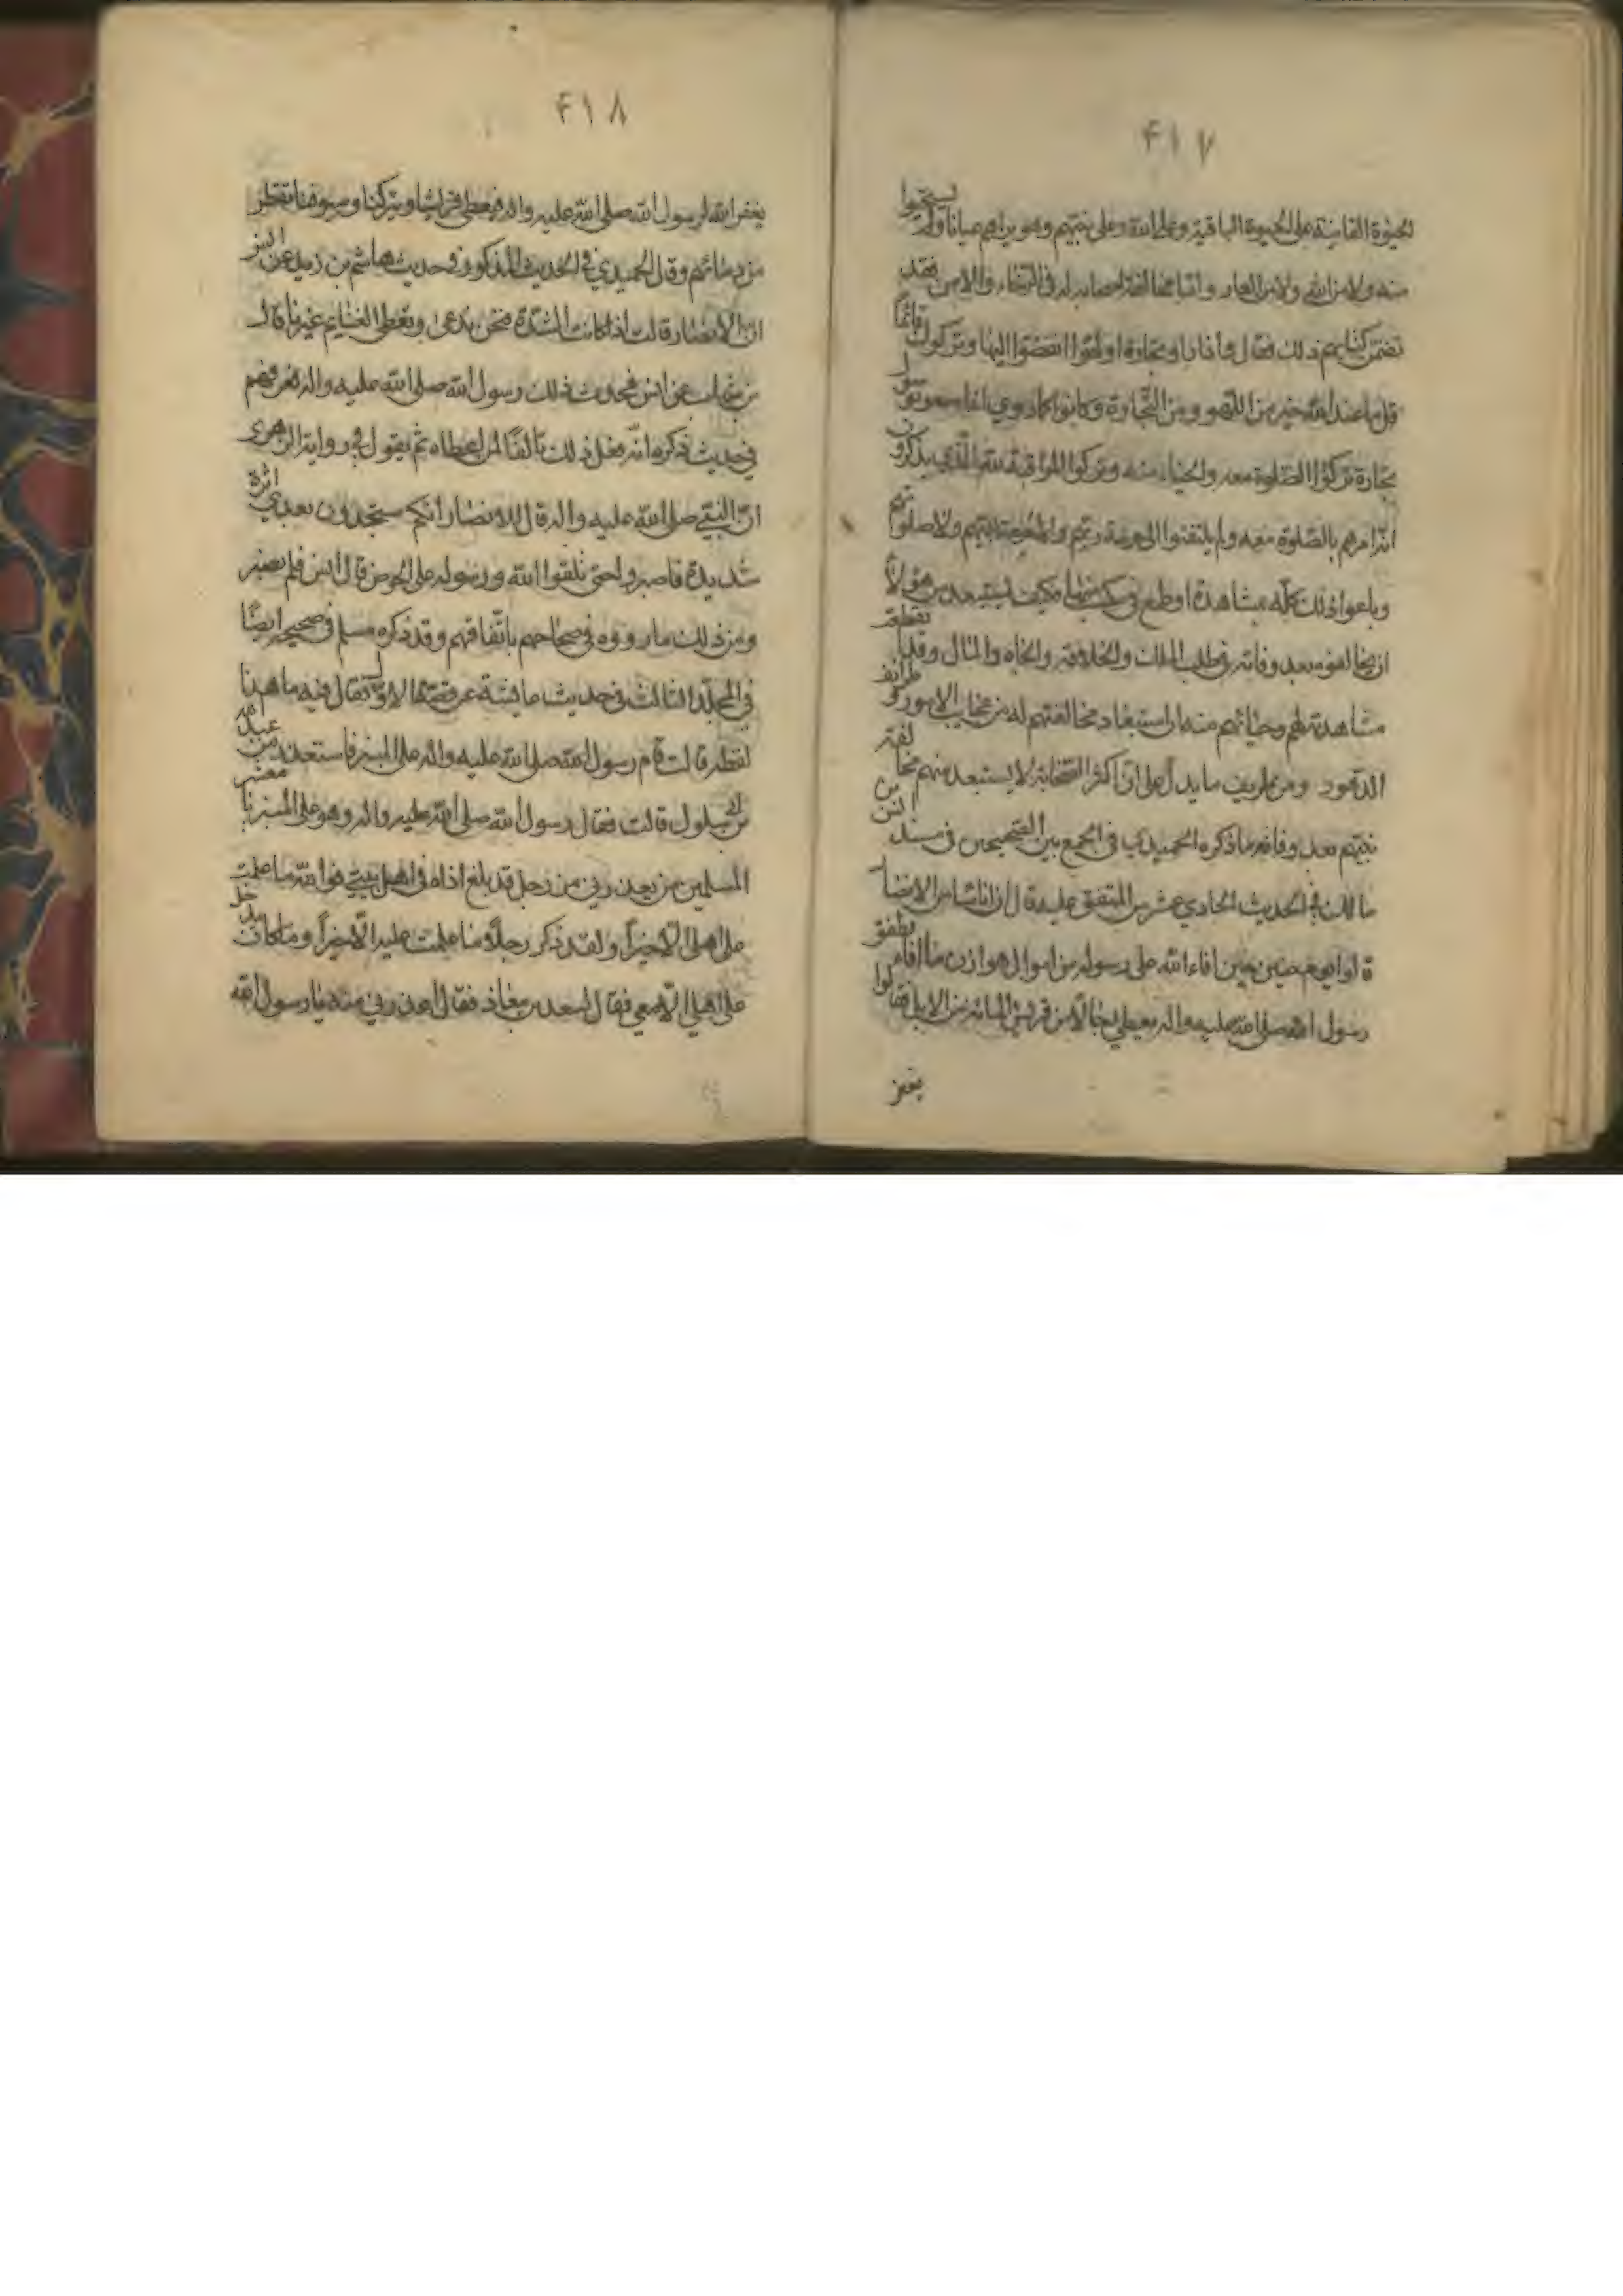 ۴۱۷
الحيوة الفانية على الحيوة الباقية وعلى الله وعلى نبيهم وهو يراهم عيانا ولم يستحيوا
منه ولا من الله ولا من العار واما مخالفة اصحابه له في الرخاء والامن فقد
تضمن كتابهم ذلك فقال واذا راوا تجارة او لهوا انفضوا اليها وتركوك قائما
قل ما عند الله خير من اللهو ومن التجارة وكانوا كما روي اذا سمعوا بوصول
تجارة تركوا الصلوة معه والحياء منه وتركوا المراقبة لله الذي يذكرون
انه امرهم بالصلوة معه ولم يلتفتوا الى حرمة ربهم ولا حرمة نبيهم ولا صلوتهم
وباعوا ذلك كله بمشاهدة او طمع في مكسب منها فكيف يستبعد من هؤلاء
ان يخالفوه بعد وفاته في طلب الملك والخلافة والجاه والمال وقد انقطعت
مشاهدته لهم وحيائهم منه ان استبعاد مخالفتهم له من عجائب الامور وطرائف
الدهور ومن طريف ما يدل على ان اكثر الصحابة لا يستبعد منهم مخالفة
نبيهم بعد وفاته ما ذكره الحميدي في الجمع بين الصحيحين في مسند انس بن
مالك في الحديث الحادي عشر من المتفق عليه قال ان اناسا من الانصار
قالوا يوم حنين حين افاء الله على رسوله من اموال هوازن ما افاء فطفق
رسول الله صلى الله عليه واله يعطي رجالا من قريش المائة من الابل فقالوا
يغفر
۴۱۸
يغفر الله لرسول الله صلى الله عليه واله فيعطي قريشا ويتركنا وسيوفنا تقطر
من دمائهم وقال الحميدي في الحديث المذكور وفي حديث هاشم بن زيد عن انس
ان الانصار قالت اذا كانت الشدة فنحن ندعى وتعطى الغنائم غيرنا قال
بن شهاب عن انس فحدث ذلك رسول الله صلى الله عليه واله فعرفهم
في حديث ذكره انه فعل ذلك تالفا لمن اعطاه ثم يقول في رواية الزهري
ان النبي صلى الله عليه واله قال للانصار انكم ستجدون بعدي اثرة
شديدة فاصبروا حتى تلقوا الله ورسوله على الحوض قال انس فلم نصبر
ومن ذلك ما رووه في صحاحهم باتفاقهم وقد ذكره مسلم في صحيحه ايضا
في المجلد الثالث في حديث عايشة عن قصتها الاول فقال فيه ما هذا
لفظه قالت قام رسول الله صلى الله عليه واله على المنبر فاستعذر من عبد الله
بن ابي سلول قالت فقال رسول الله صلى الله عليه واله وهو على المنبر يا معشر
المسلمين من يعذرني من رجل قد بلغ اذاه في اهل بيتي فوالله ما علمت
على اهلي الا خيرا ولقد ذكر رجلا وما علمت عليه الا خيرا وما كان يدخل
على اهلي الا معي فقال سعد بن معاذ فقال اعذرني منه يا رسول الله